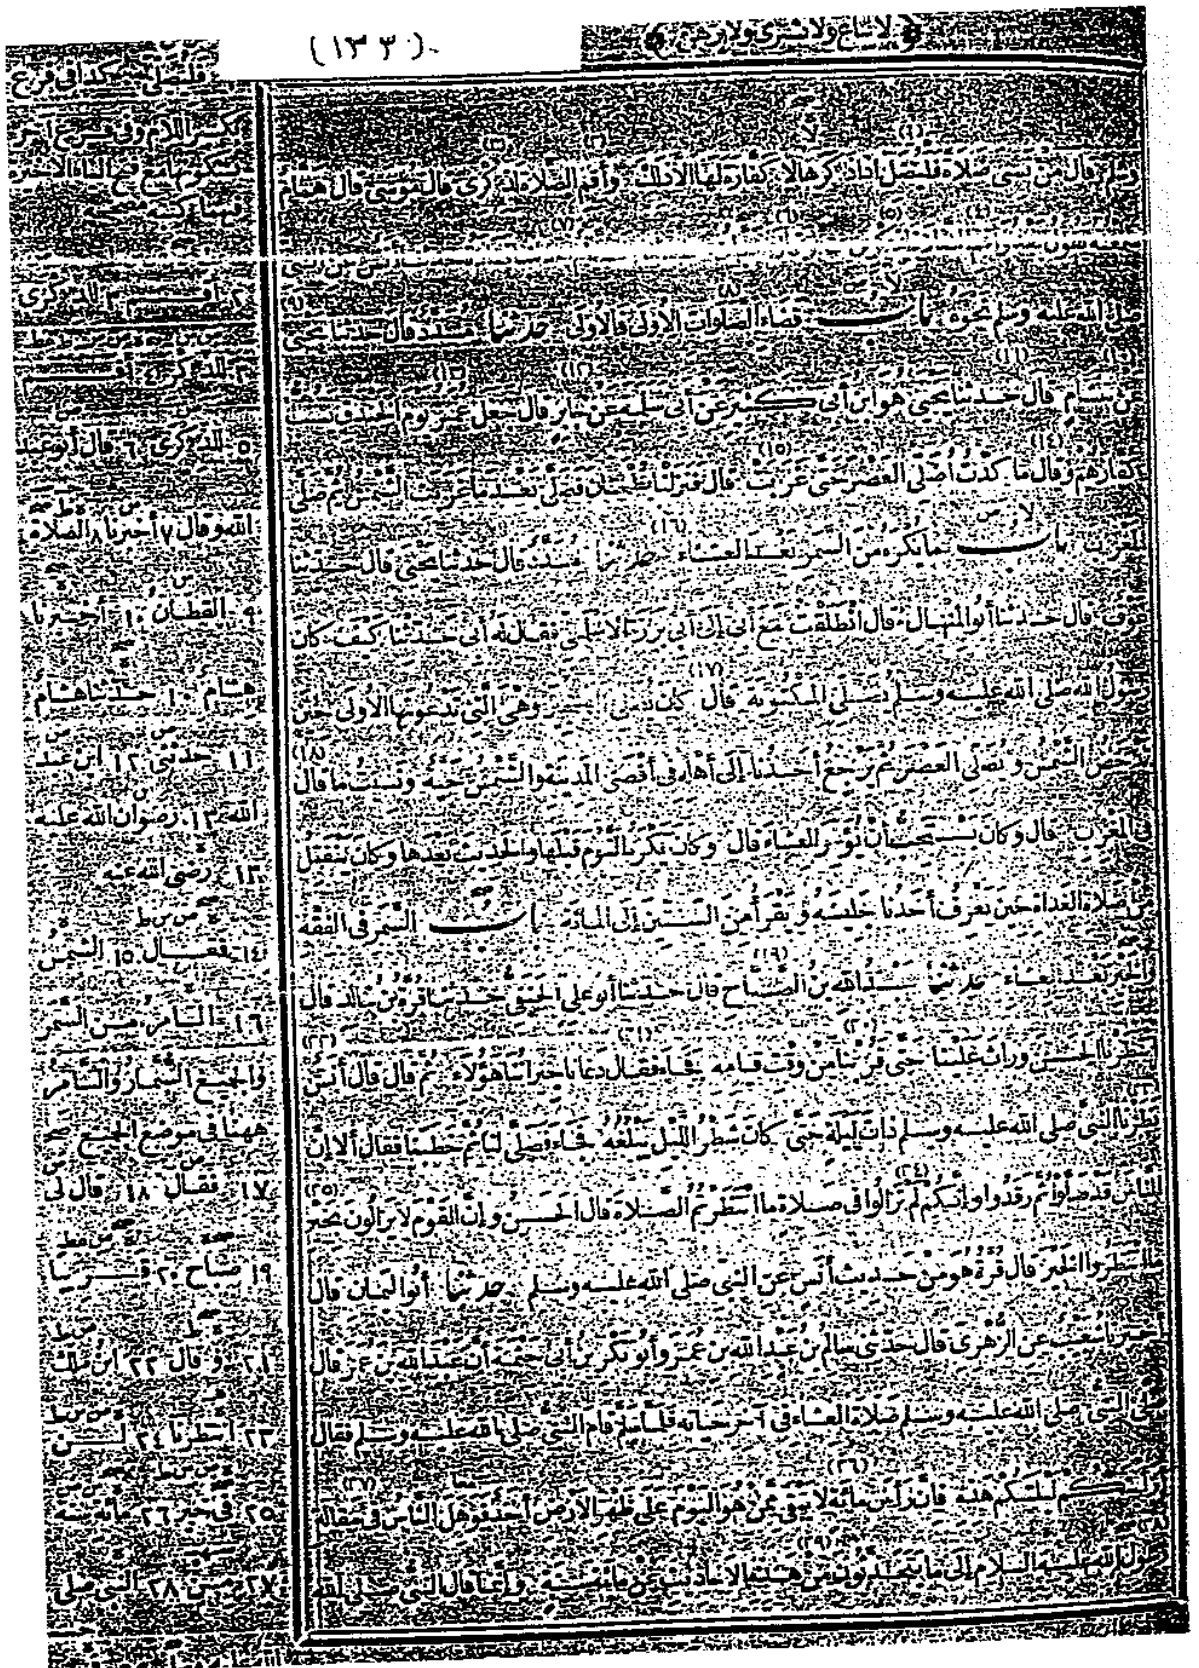 لا تباع ولا تشترى ولا ترهن
(١٣٣)
وسلم قال من نسى صلاة فليصل اذا ذكرها لا كفارة لها الا ذلك وأقم الصلاة لذكرى قال موسى قال همام
صلى الله عليه وسلم نحوه باب قضاء الصلوات الأولى فالاولى حدثنا مسدد قال حدثنا يحيى
عن هشام قال حدثنا يحيى هو ابن أبى كثير عن أبى سلمة عن جابر قال جعل عمر يوم الخندق يسب
كفارهم وقال ما كدت أصلى العصر حتى غربت قال فنزلنا بطحان فصلى بعد ما غربت الشمس ثم صلى
المغرب باب ما يكره من السمر بعد العشاء حدثنا مسدد قال حدثنا يحيى قال حدثنا
عوف قال حدثنا أبو المنهال قال انطلقت مع أبى إلى أبى برزة الاسلمى فقال له أبى حدثنا كيف كان
رسول الله صلى الله عليه وسلم يصلى المكتوبة قال كان يصلى الهجير وهى التى تدعونها الأولى حين
تدحض الشمس ويصلى العصر ثم يرجع أحدنا إلى أهله فى أقصى المدينة والشمس حية ونسيت ما قال
فى المغرب قال وكان يستحب أن يؤخر العشاء قال وكان يكره النوم قبلها والحديث بعدها وكان ينفتل
من صلاة الغداة حين يعرف أحدنا جليسه ويقرأ من الستين إلى المائة باب السمر فى الفقه
والخير بعد العشاء حدثنا عبد الله بن الصباح قال حدثنا أبو على الحنفى حدثنا قرة بن خالد قال
انتظرنا الحسن وراث علينا حتى قربنا من وقت قيامه فجاء فقال دعانا جيراننا هؤلاء ثم قال قال أنس
نظرنا النبى صلى الله عليه وسلم ذات ليلة حتى كان شطر الليل يبلغه فجاء فصلى لنا ثم خطبنا فقال ألا إن
الناس قد صلوا ثم رقدوا وإنكم لم تزالوا فى صلاة ما انتظرتم الصلاة قال الحسن وإن القوم لا يزالون بخير
ما انتظروا الخير قال قرة هو من حديث أنس عن النبى صلى الله عليه وسلم حدثنا أبو اليمان قال
أخبرنا شعيب عن الزهرى قال حدثنى سالم بن عبد الله بن عمر وأبو بكر بن أبى حثمة أن عبد الله بن عمر قال
صلى النبى صلى الله عليه وسلم صلاة العشاء فى آخر حياته فلما سلم قام النبى صلى الله عليه وسلم فقال
أرأيتكم ليلتكم هذه فان رأس مائة لا يبقى ممن هو اليوم على ظهر الارض أحد فوهل الناس فى مقالة
رسول الله عليه السلام إلى ما يتحدثون من هذه الاحاديث عن مائة سنة وإنما قال النبى صلى الله
فليصلى كذا فى فرع
بكسر اللام وفى فرع آخر
بسكونها مع فتح الياء الاخيرة
٣ للذكرى ٤ أقم
٥ للذكرى ٦ قال أبو عبد
الله وقال ٧ أخبرنا ٨ الصلاة
٩ القطان ١٠ أخبرنا
هشام ١٠ حدثنا هشام
١١ حدثنى ١٢ ابن عبد
الله ١٣ رضوان الله عليه
١٣ رضى الله عنه
١٤ فقال ١٥ الشمس
١٦ السامر من السمر
والجميع السمار والسامر
ههنا فى موضع الجميع
١٧ فقال ١٨ قال لى
١٩ صباح ٢٠ قريبا
٢١ وقال ٢٢ ابن مالك
٢٣ انتظرنا ٢٤ لن
٢٥ فى خير ٢٦ مائة سنة
٢٧ من ٢٨ النبى صلى